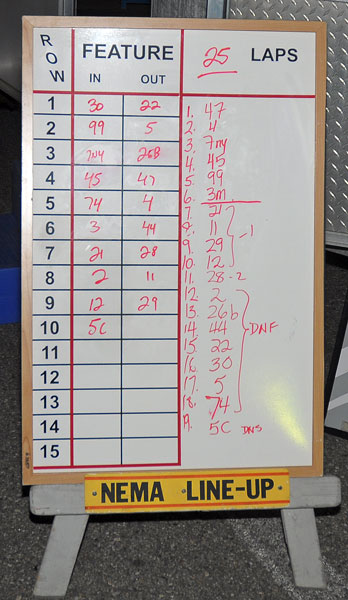 ROW FEATURE 25 LAPS
IN OUT
1 30 22
2 99 5
3 7ny 26B
4 45 47
5 74 4
6 3 44
7 21 28
8 2 11
9 12 29
10 5C
11
12
13
14
15
1. 47
2. 4
3. 7ny
4. 45
5. 99
6. 3m
7. 21
8. 11
9. 29
10. 12
-1
11. 28 -2
12. 2
13. 26b
14. 44
15. 22
16. 30
17. 5
18. 74
DNF
19. 5C DNS
NEMA LINE-UP